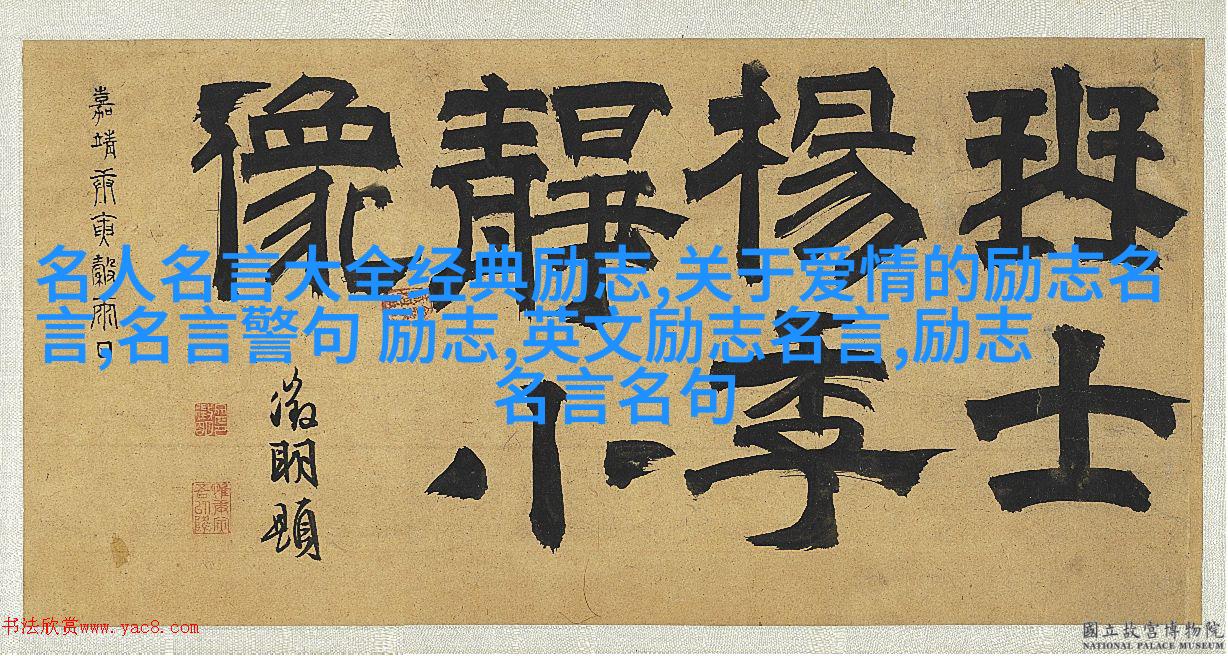 琴士
楊季
靜小
像
徵明題
嘉靖庚寅穀雨日
名人名言大全经典励志,关于爱情的励志名
言,名言警句 励志,英文励志名言,励志
名言名句
书法欣赏www.yac8.com
國立故宮博物院
NATIONAL PALACE MUSEUM